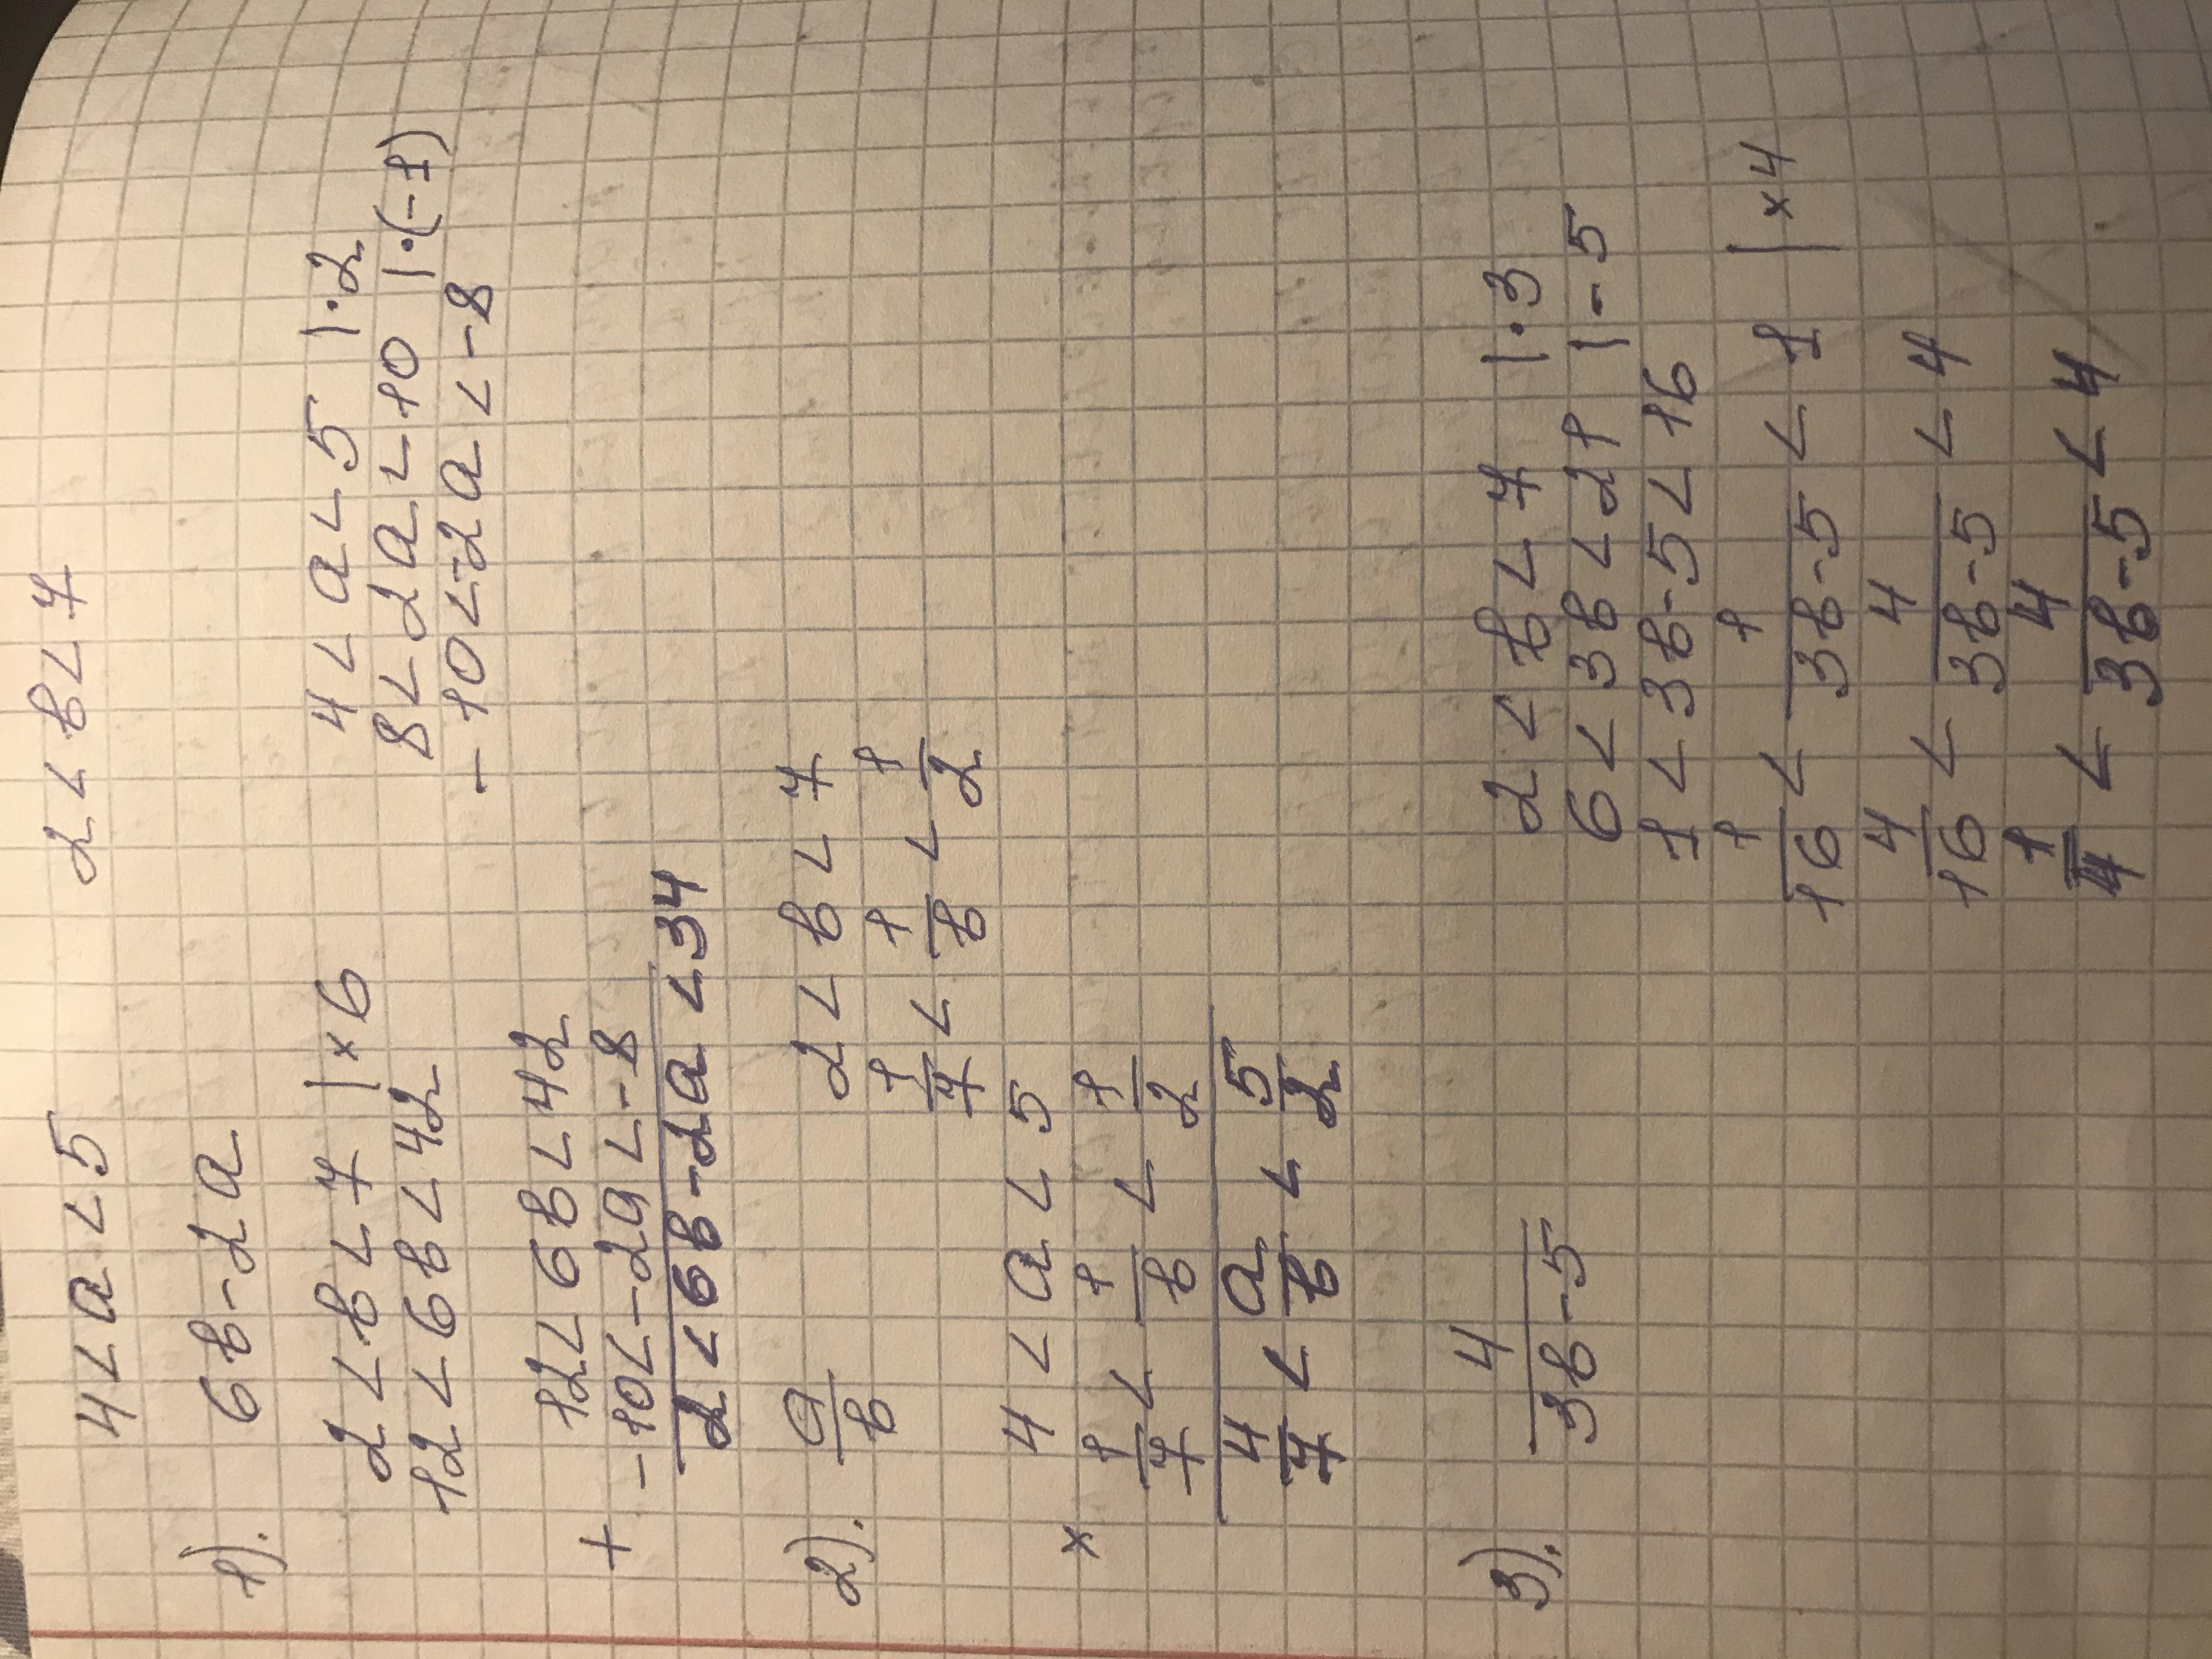 4 < a < 5    2 < в < 7
1). 6в - 2a
2 < в < 7 | × 6    4 < a < 5 | · 2
12 < 6в < 42    8 < 2a < 10 | · (-1)
-10 < -2a < -8
12 < 6в < 42
+ -10 < -2a < -8
2 < 6в - 2a < 34
2). a/в    2 < в < 7
1/7 < 1/в < 1/2
4 < a < 5
× 1/7 < 1/в < 1/2
4/7 < a/в < 5/2
3). 4/(3в-5)    2 < в < 7 | · 3
6 < 3в < 21 | - 5
1 < 3в - 5 < 16
1/16 < 1/(3в-5) < 1 | × 4
4/16 < 4/(3в-5) < 4
1/4 < 4/(3в-5) < 4